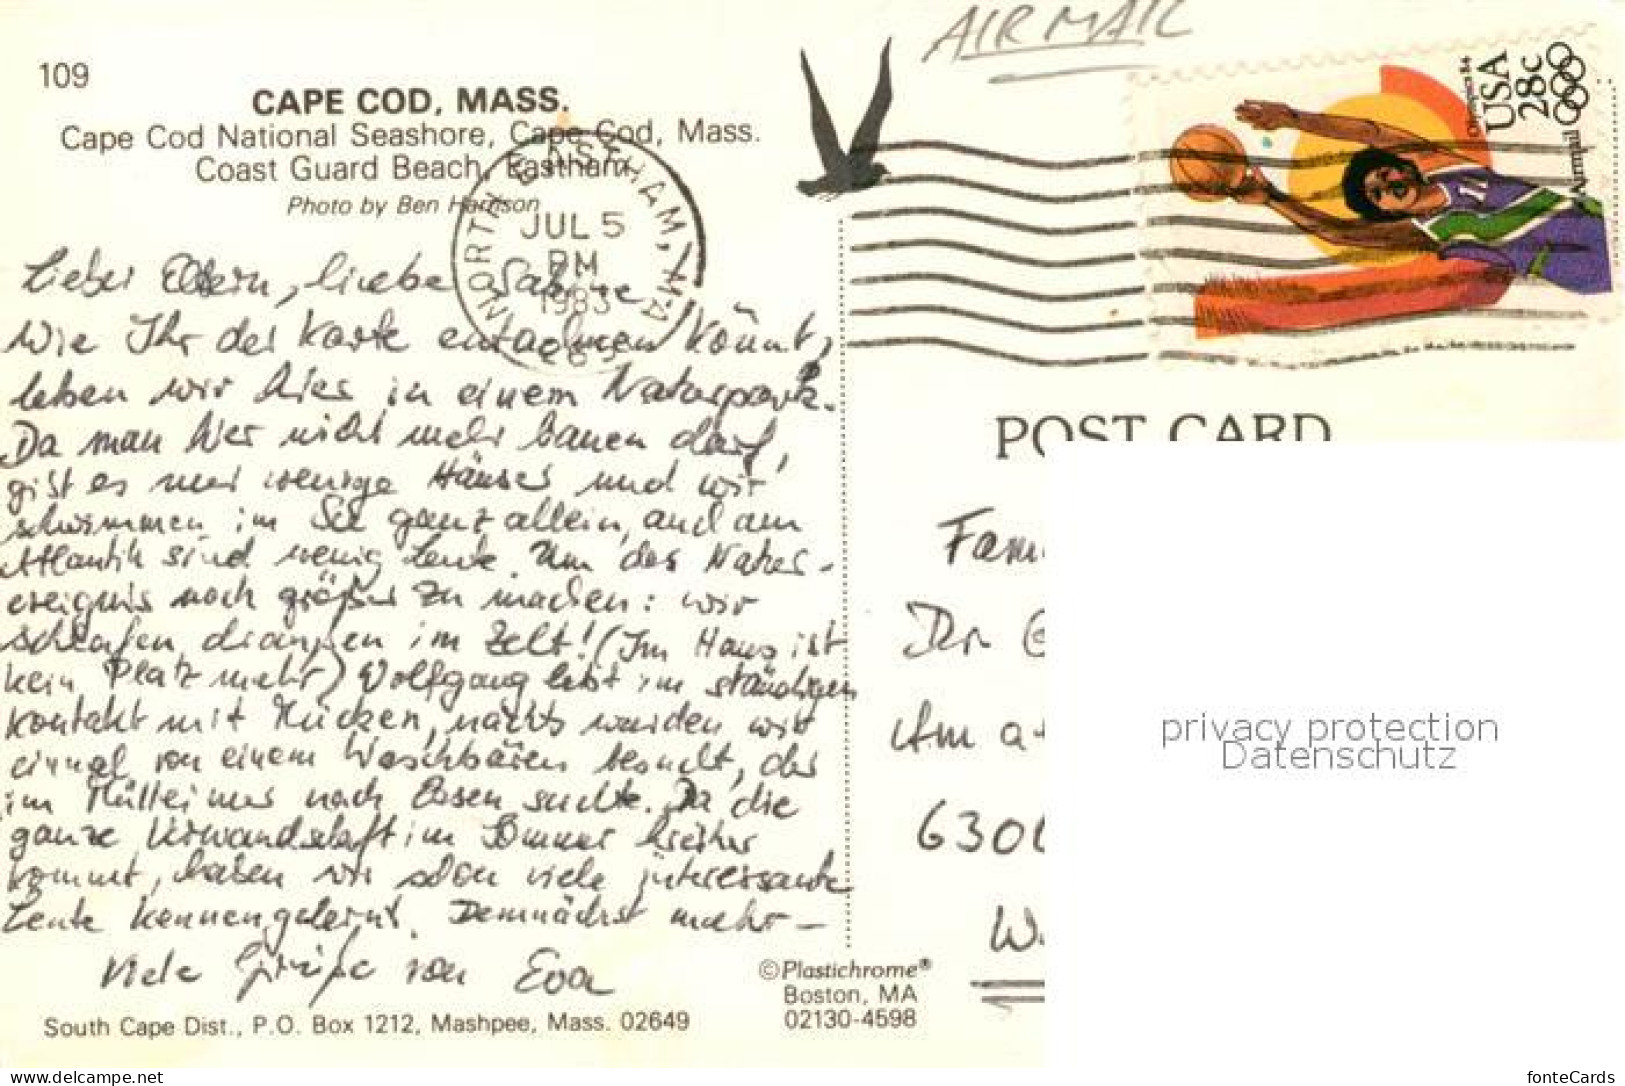 AIR MAIL
109
CAPE COD, MASS.
Cape Cod National Seashore, Cape Cod, Mass.
Coast Guard Beach, Eastham
Photo by Ben Harrison
NORTH EASTHAM, MA
JUL 5
PM
1983
Olympics 84
USA
28c
Airmail
Liebe Eltern, liebe Sabine,
Wie Ihr der Karte entnehmen könnt,
leben wir hier in einem Naturpark.
Da man hier nicht mehr bauen darf,
gibt es nur wenige Häuser und wir
schwimmen im See ganz allein, und am
Atlantik sind wenig Leute. Um das Natur-
ereignis noch größer zu machen: wir
schlafen draußen im Zelt! (Im Haus ist
kein Platz mehr) Wolfgang lebt im ständigen
Kontakt mit Mücken, nachts wurden wir
einmal von einem Waschbären besucht, der
im Mülleimer nach Essen suchte. Da die
ganze Verwandschaft im Sommer hierher
kommt, haben wir schon viele interessante
Leute kennengelernt. Demnächst mehr –
Viele Grüße von Eva
POST CARD
Fam
Dr
Am a
630
W
privacy protection
Datenschutz
©Plastichrome®
Boston, MA
02130-4598
South Cape Dist., P.O. Box 1212, Mashpee, Mass. 02649
www.delcampe.net
fonteCards